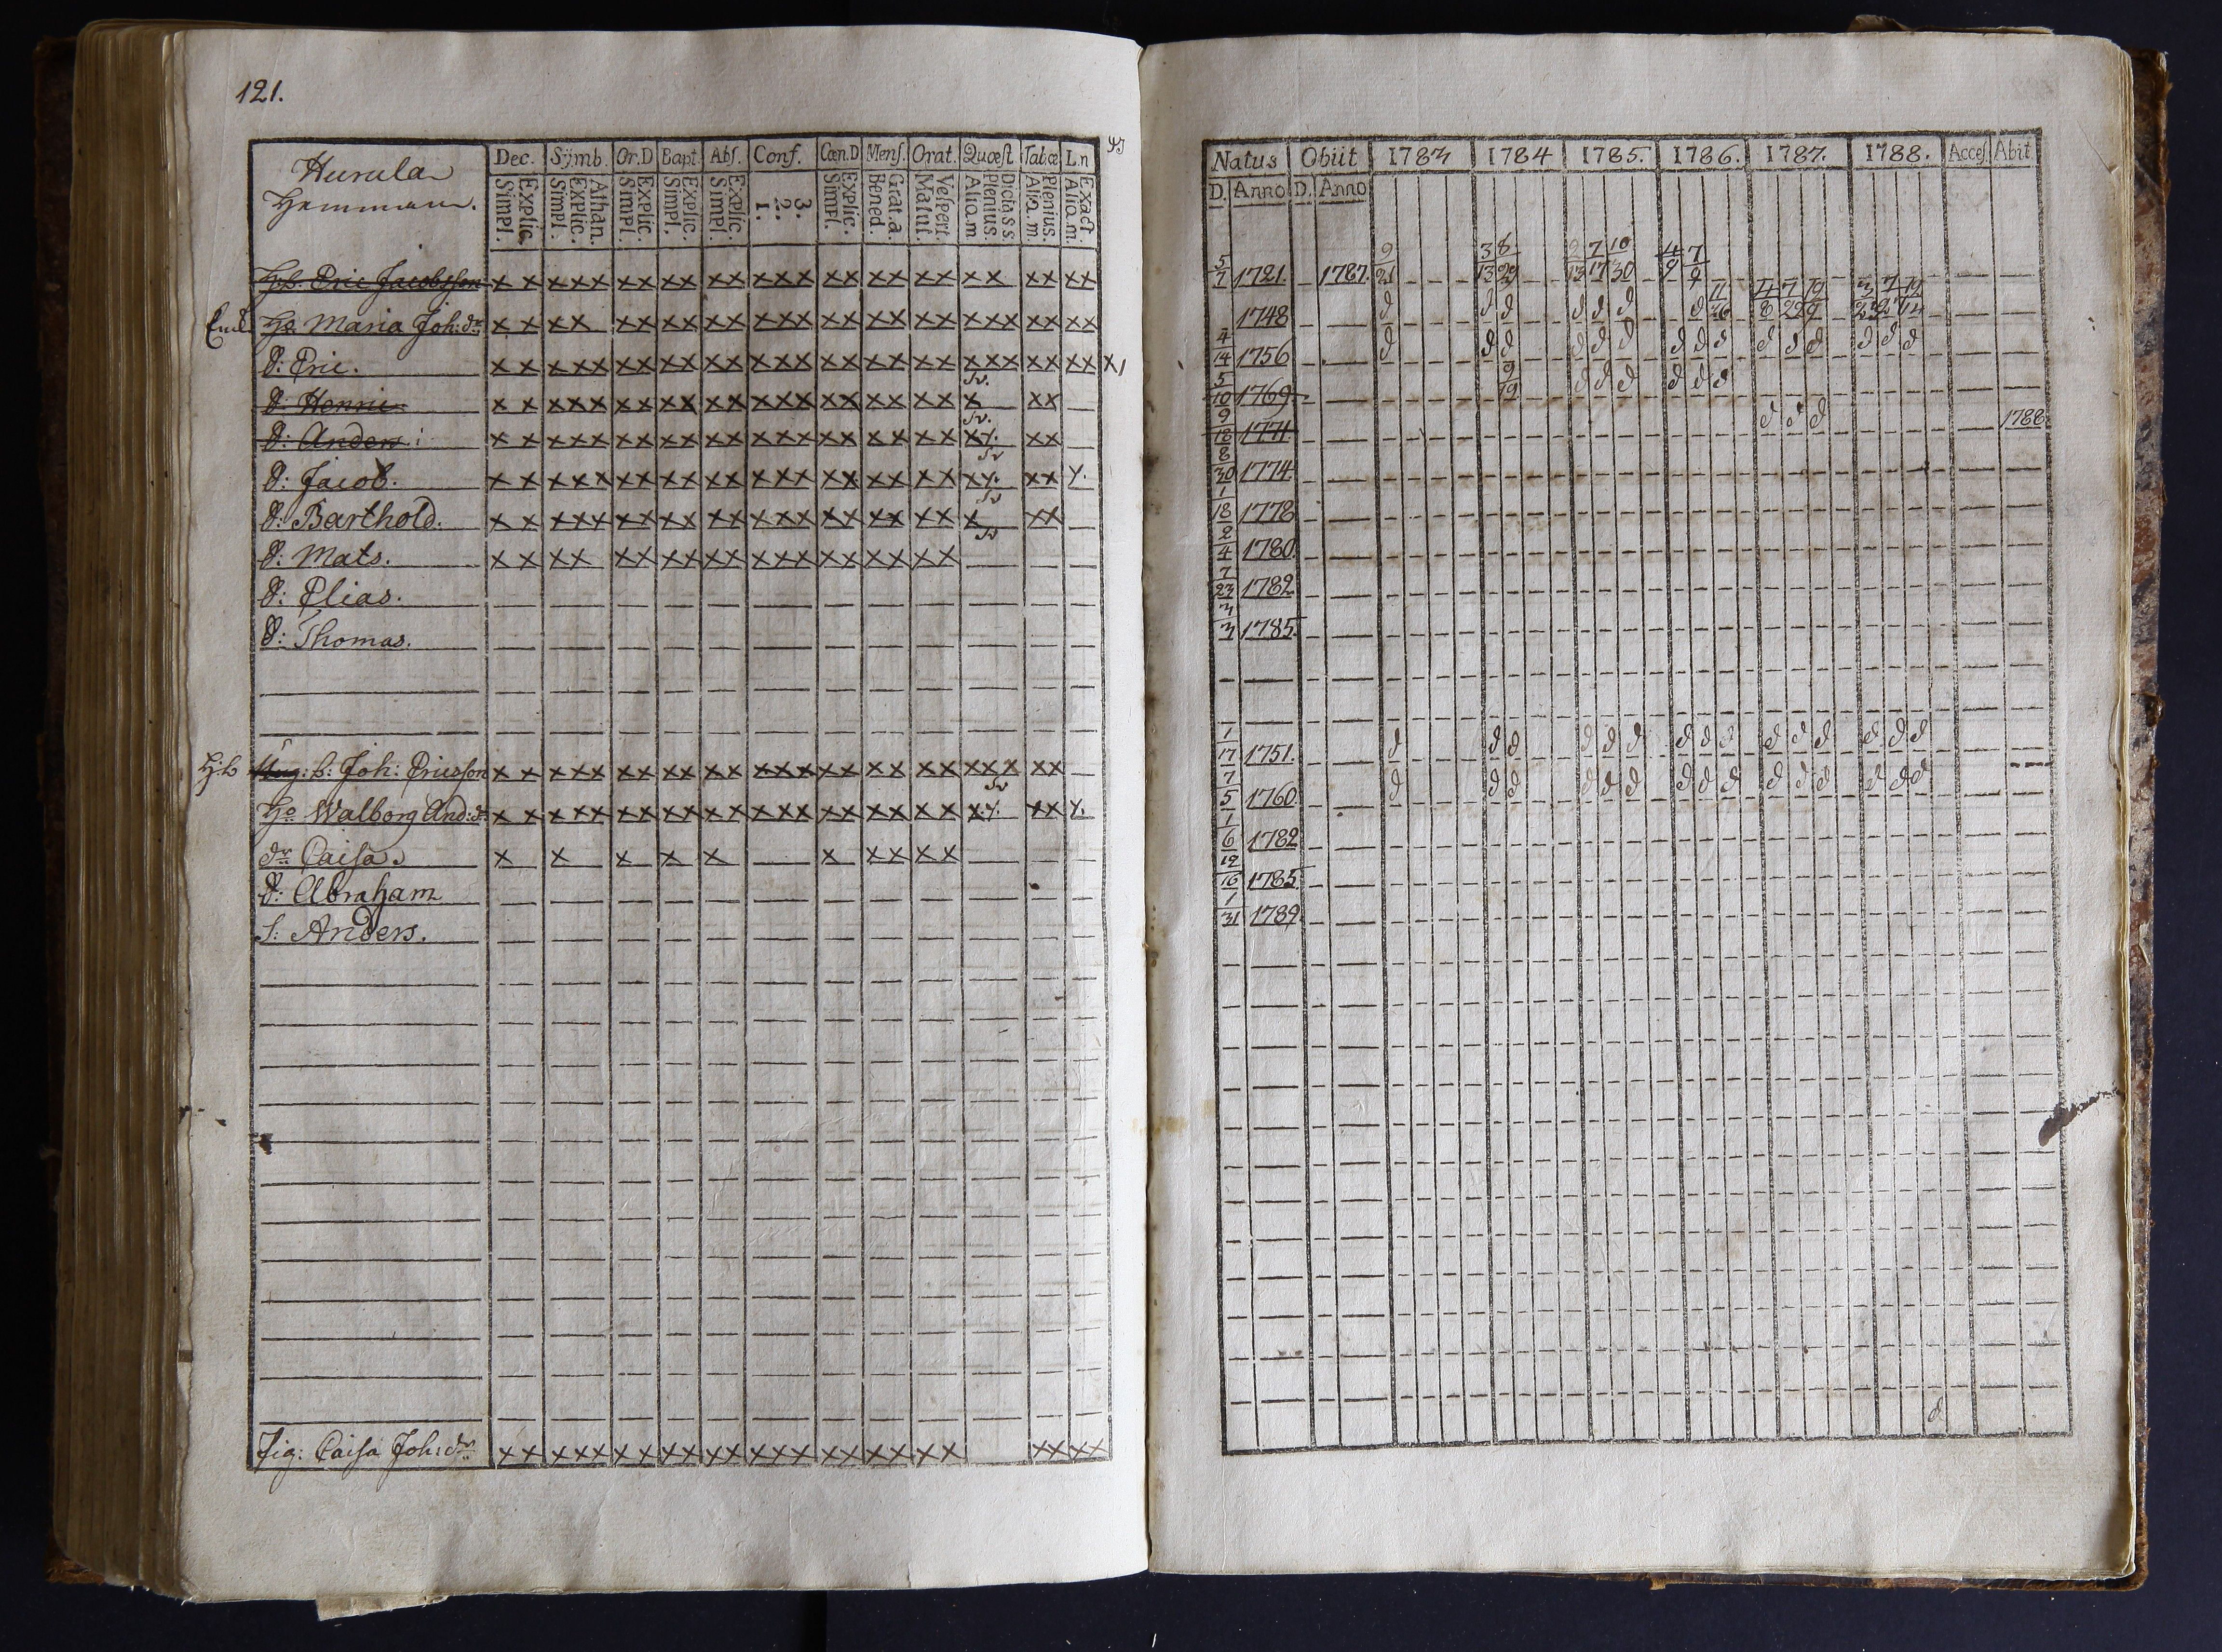 121.
Hurula
Hemman.
Dec. Symb. Or.D Bapt. Abſ. Conf. Cœn.D Menſ. Orat. Quæſt Tab.œ L.n
Explic. Simpl.
Athan. Explic. Simpl.
Explic. Simpl.
Explic. Simpl.
Explic. Simpl.
3. 2. 1.
Explic. Simpl.
Grat.a. Bened.
Veſpert. Matut.
Dicta s s. Plenius. Aliq.m
Plenius. Aliq.m.
Exact. Aliq.m.
Hb. Eric Jacobsſon x x x x x x x x x x x x x x x x x x x x x x x x x x
Enk. Hu Maria Joh: dr x x x x x x x x x x x x x x x x x x x x x x x x x x
S: Eric. x x x x x x x x x x x x x x x x x x x x x x x x x x x x
S: Henric x x x x x x x x x x x x x x x x x x x x x x x
S: Anders: x x x x x x x x x x x x x x x x x x x x x y. x x
S: Jacob. x x x x x x x x x x x x x x x x x x x x x y. x x y.
S: Barthold. x x x x x x x x x x x x x x x x x x x x x x x
S: Mats. x x x x x x x x x x x x x x x x x x x
S: Elias.
S: Thomas.
H:b Ung: b: Joh: Ericsſon x x x x x x x x x x x x x x x x x x x x x x x x x
Hu Walborg And: dr x x x x x x x x x x x x x x x x x x x x x y. x x y.
dr Caisa. x x x x x x x x x x
S: Abraham
S: Anders.
Pig: Caisa Joh: dr x x x x x x x x x x x x x x x x x x x x x x x x
Natus Obiit 1783 1784 1785. 1786. 1787. 1788. Acceſ. Abit.
D. Anno D. Anno
5/7 1721. 1787. 9/21 3/13 8/29 7/17 10/30 4/9 7/9
1748 d d d d d d d 11/26 4/8 7/29
4/14 1756 d d d d d d d d d d d d d d d
5/10 1769 9/19 d d d d d d
9/18 1771. d d d 1788.
8/30 1774.
1/18 1778
2/4 1780.
7/23 1782
3/3 1785.
1/17 1751. d d d d d d d d d d d d d d d
7/5 1760. d d d d d d d d d d d d d d d
1/6 1782
12/16 1785.
1/31 1789.
d